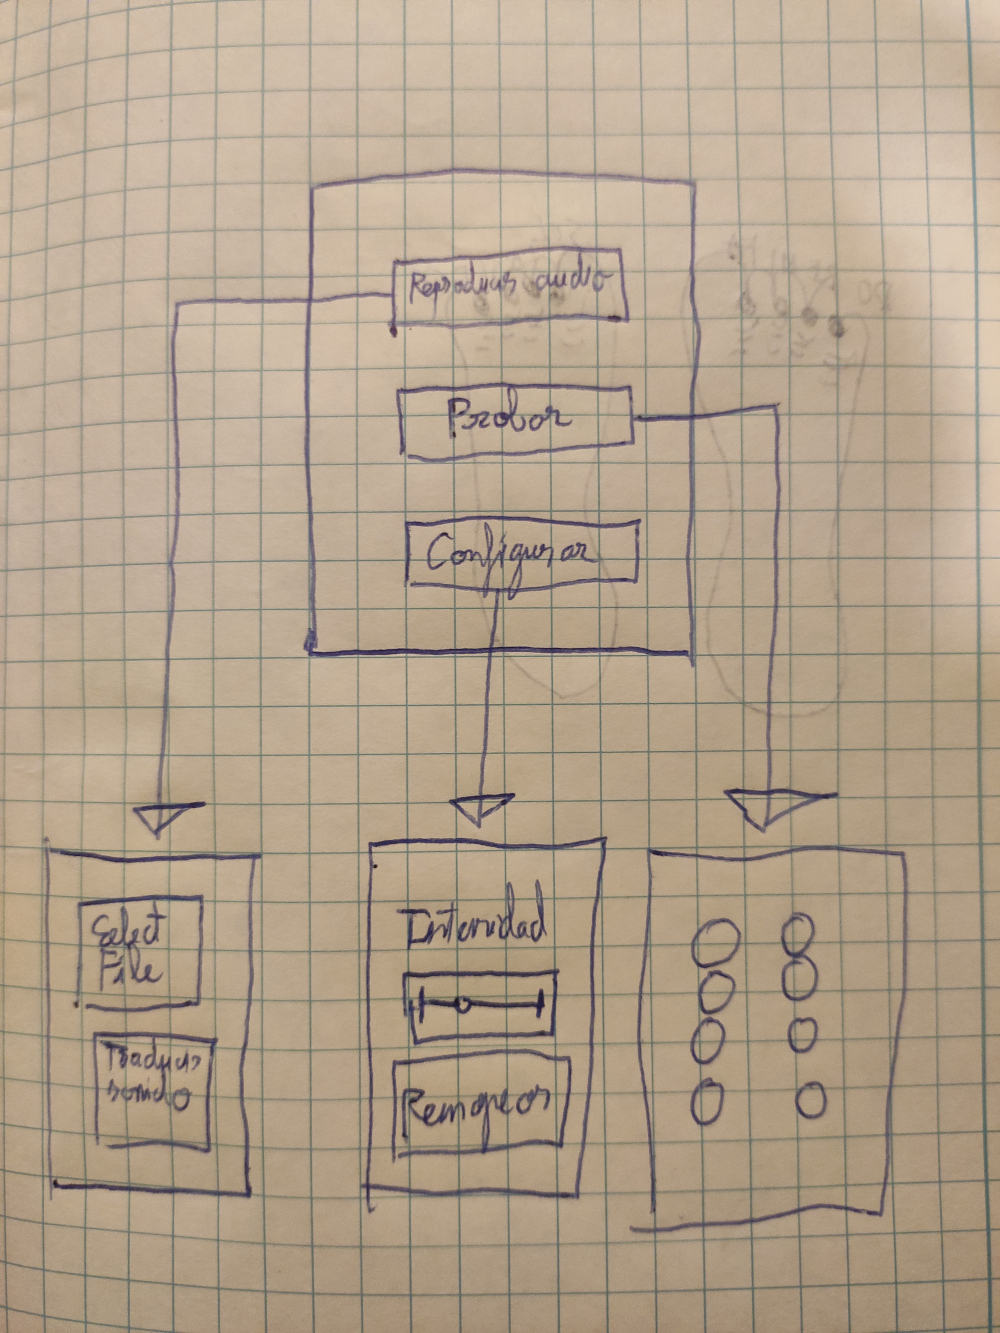 Reproducir audio
Probar
Configurar
Select
File
Traducir
sonido
Intensidad
Remapear